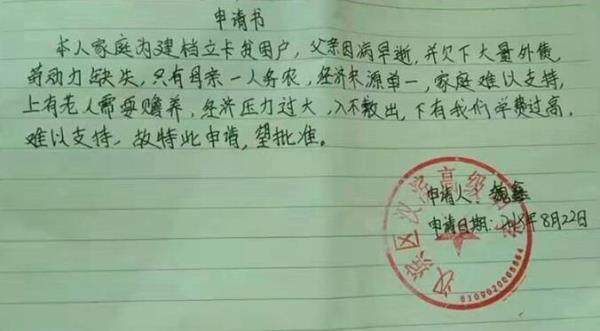 申请书
本人家庭为建档立卡贫困户，父亲因病早逝，并欠下大量外债，
劳动力缺失，只有母亲一人务农，经济来源单一，家庭难以支持，
上有老人需要赡养，经济压力过大，入不敷出，下有我们学费过高，
难以支持，故特此申请，望批准。
申请人：魏鑫
申请日期：2018年8月22日
汉滨区汉滨高级